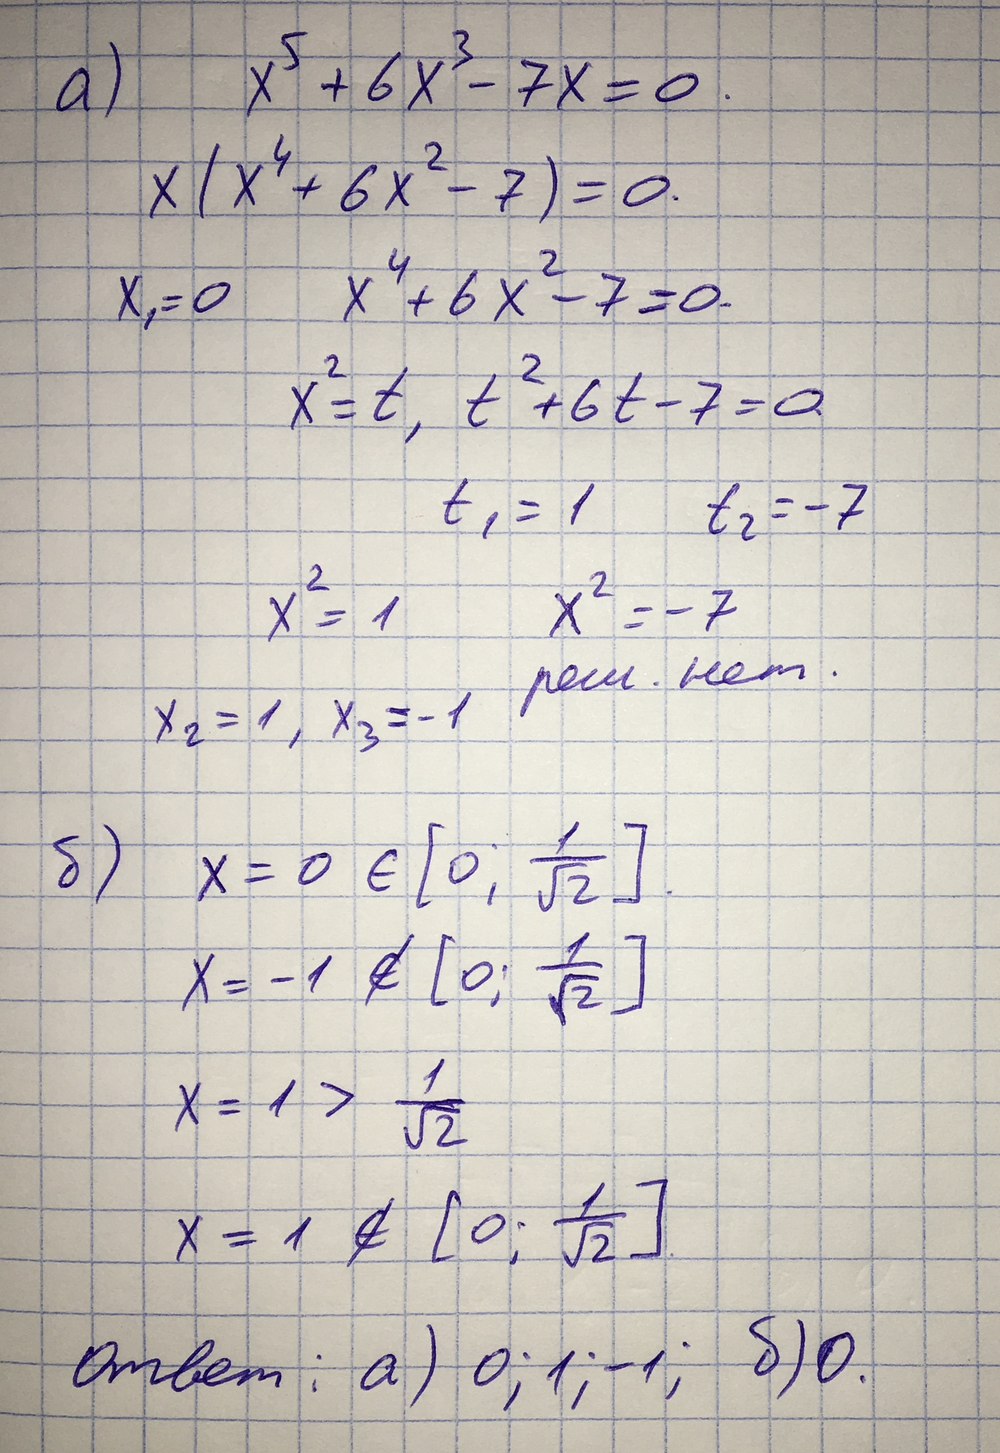 а) x⁵ + 6x³ - 7x = 0.
x(x⁴ + 6x² - 7) = 0.
x₁ = 0 x⁴ + 6x² - 7 = 0.
x² = t, t² + 6t - 7 = 0
t₁ = 1 t₂ = -7
x² = 1 x² = -7
реш. нет.
x₂ = 1, x₃ = -1
б) x = 0 ∈ [0; 1/√2].
x = -1 ∉ [0; 1/√2]
x = 1 > 1/√2
x = 1 ∉ [0; 1/√2].
Ответ: а) 0; 1; -1; б) 0.